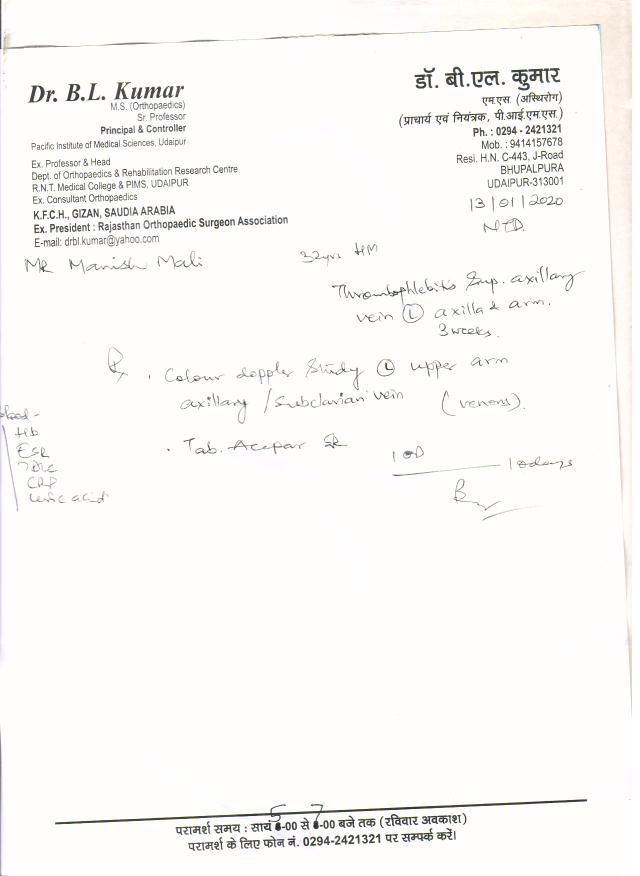 Dr. B.L. Kumar
M.S. (Orthopaedics)
Sr. Professor
Principal & Controller
Pacific Institute of Medical Sciences, Udaipur
Ex. Professor & Head
Dept. of Orthopaedics & Rehabilitation Research Centre
R.N.T. Medical College & PIMS, UDAIPUR
Ex. Consultant Orthopaedics
K.F.C.H., GIZAN, SAUDIA ARABIA
Ex. President : Rajasthan Orthopaedic Surgeon Association
E-mail: drbl.kumar@yahoo.com
डॉ. बी.एल. कुमार
एम.एस. (अस्थिरोग)
(प्राचार्य एवं नियंत्रक, पी.आई.एम.एस.)
Ph. : 0294 - 2421321
Mob. : 9414157678
Resi. H.N. C-443, J-Road
BHUPALPURA
UDAIPUR-313001
13/01/2020
Mr Manish Mali 32yrs HM
Thrombophlebitis Sup. axillary
vein Ⓛ axilla & arm.
3 weeks.
Rx . Colour doppler Study Ⓛ upper arm
axillary / Subclavian vein (venous).
. Tab. Acepar SR 1 OD 10days
Blood -
Hb
ESR
TDLC
CRP
Uric acid
परामर्श समय : सायं 5-00 से 7-00 बजे तक (रविवार अवकाश)
परामर्श के लिए फोन नं. 0294-2421321 पर सम्पर्क करें।